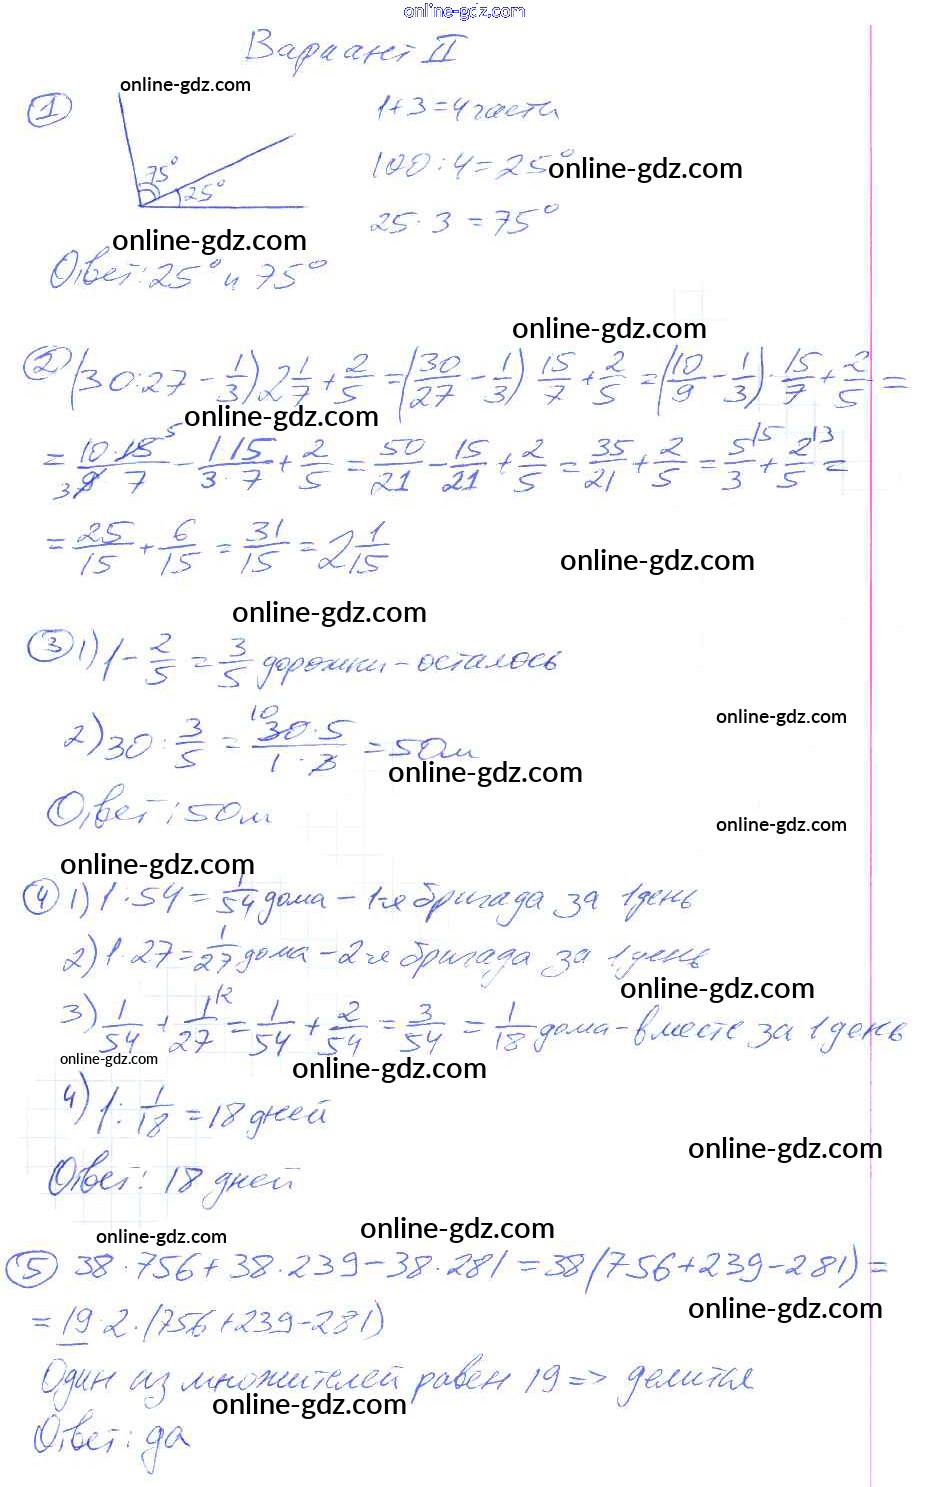 online-gdz.com
Вариант II
online-gdz.com
① 1+3=4части
100:4=25° online-gdz.com
75°
25°
25·3=75°
online-gdz.com
Ответ: 25° и 75°
online-gdz.com
② (30:27 - 1/3)·2 1/7 + 2/5 = (30/27 - 1/3) 15/7 + 2/5 = (10/9 - 1/3)·15/7 + 2/5 =
online-gdz.com
= 10·15 5/3 9·7 - 1·15/3·7 + 2/5 = 50/21 - 15/21 + 2/5 = 35/21 + 2/5 = 5/3 |5 + 2/5 |3 =
= 25/15 + 6/15 = 31/15 = 2 1/15
online-gdz.com
online-gdz.com
③ 1) 1 - 2/5 = 3/5 дорожки - осталось
online-gdz.com
2) 30 : 3/5 = 10 30·5/1·3 = 50м
online-gdz.com
Ответ: 50м
online-gdz.com
online-gdz.com
④ 1) 1:54 = 1/54 дома - 1-я бригада за 1 день
2) 1:27 = 1/27 дома - 2-я бригада за 1 день
online-gdz.com
3) 1/54 + 1/27 |2 = 1/54 + 2/54 = 3/54 = 1/18 дома - вместе за 1 день
online-gdz.com
online-gdz.com
4) 1 : 1/18 = 18 дней
online-gdz.com
Ответ: 18 дней
online-gdz.com
online-gdz.com
⑤ 38·756+38·239-38·281=38(756+239-281)=
online-gdz.com
=19·2·(756+239-281)
Один из множителей равен 19 => делится
online-gdz.com
Ответ: да